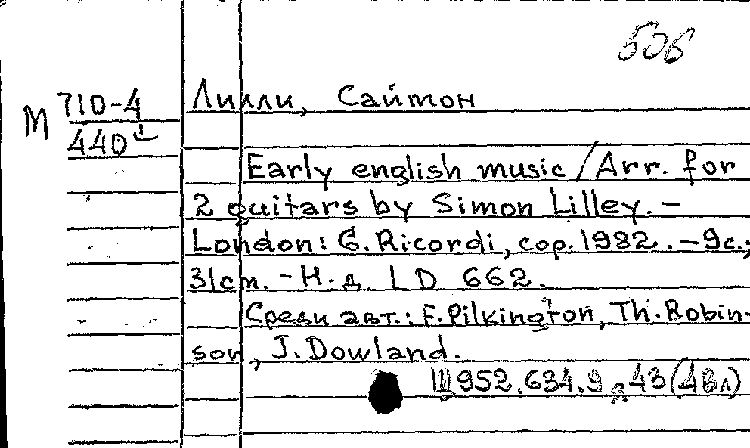 506
М 710-4 Лилли, Саймон
440
Early english music / Arr. for
2 guitars by Simon Lilley. –
London: G. Ricordi, cop. 1982. – 9с.;
31см. – Н.д. LD 662.
Среди авт.: F. Pilkington, Th. Robin-
son, J. Dowland.
Щ952.634.9я43(4Вл)